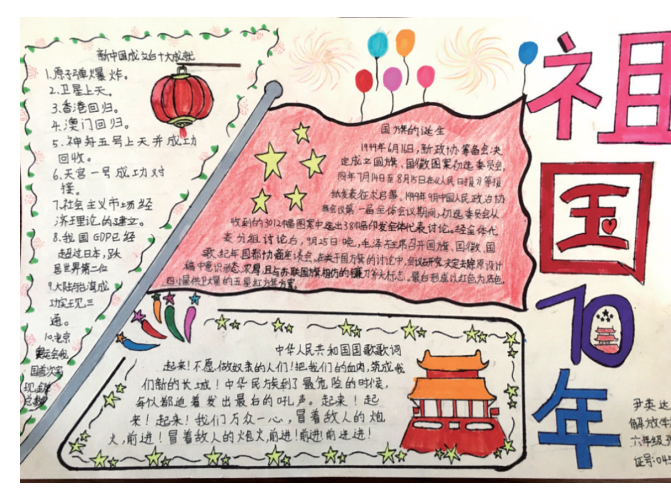 新中国成立的十大成就
1.原子弹爆炸。
2.卫星上天。
3.香港回归。
4.澳门回归。
5.神舟五号上天并成功
回收。
6.天宫一号成功对
接。
7.社会主义市场经
济理论的建立。
8.我国GDP已经
超过日本,跃
居世界第二位
9.大陆台湾成
功实现三
通。
10.北京
奥运会
国旗的诞生
1949年6月16日,新政协筹备会决
定成立国旗、国徽图案初选委员会,
同年7月14日至8月15日在《人民日报》等报
纸发表征求启事。1949年9月中国人民政治协
商会议第一届全体会议期间,初选委员会从
收到的3012幅图案中选出38幅印发全体代表讨论。经全体代
表分组讨论后,9月25日晚,毛泽东主席召开国旗、国徽、国
歌、纪年、国都协商座谈会,在关于国旗的讨论中,会议研究决定去除原设计
编中
四小星拱卫大星的五星红旗方案。
中华人民共和国国歌歌词
起来!不愿做奴隶的人们!把我们的血肉,筑成我
们新的长城!中华民族到了最危险的时候,
每个人都迫着发出最后的吼声。起来!起
来!起来!我们万众一心,冒着敌人的炮
火,前进!冒着敌人的炮火,前进!前进!前进、进!
祖
国
70
年
尹英达
解放
六年级
证号:045